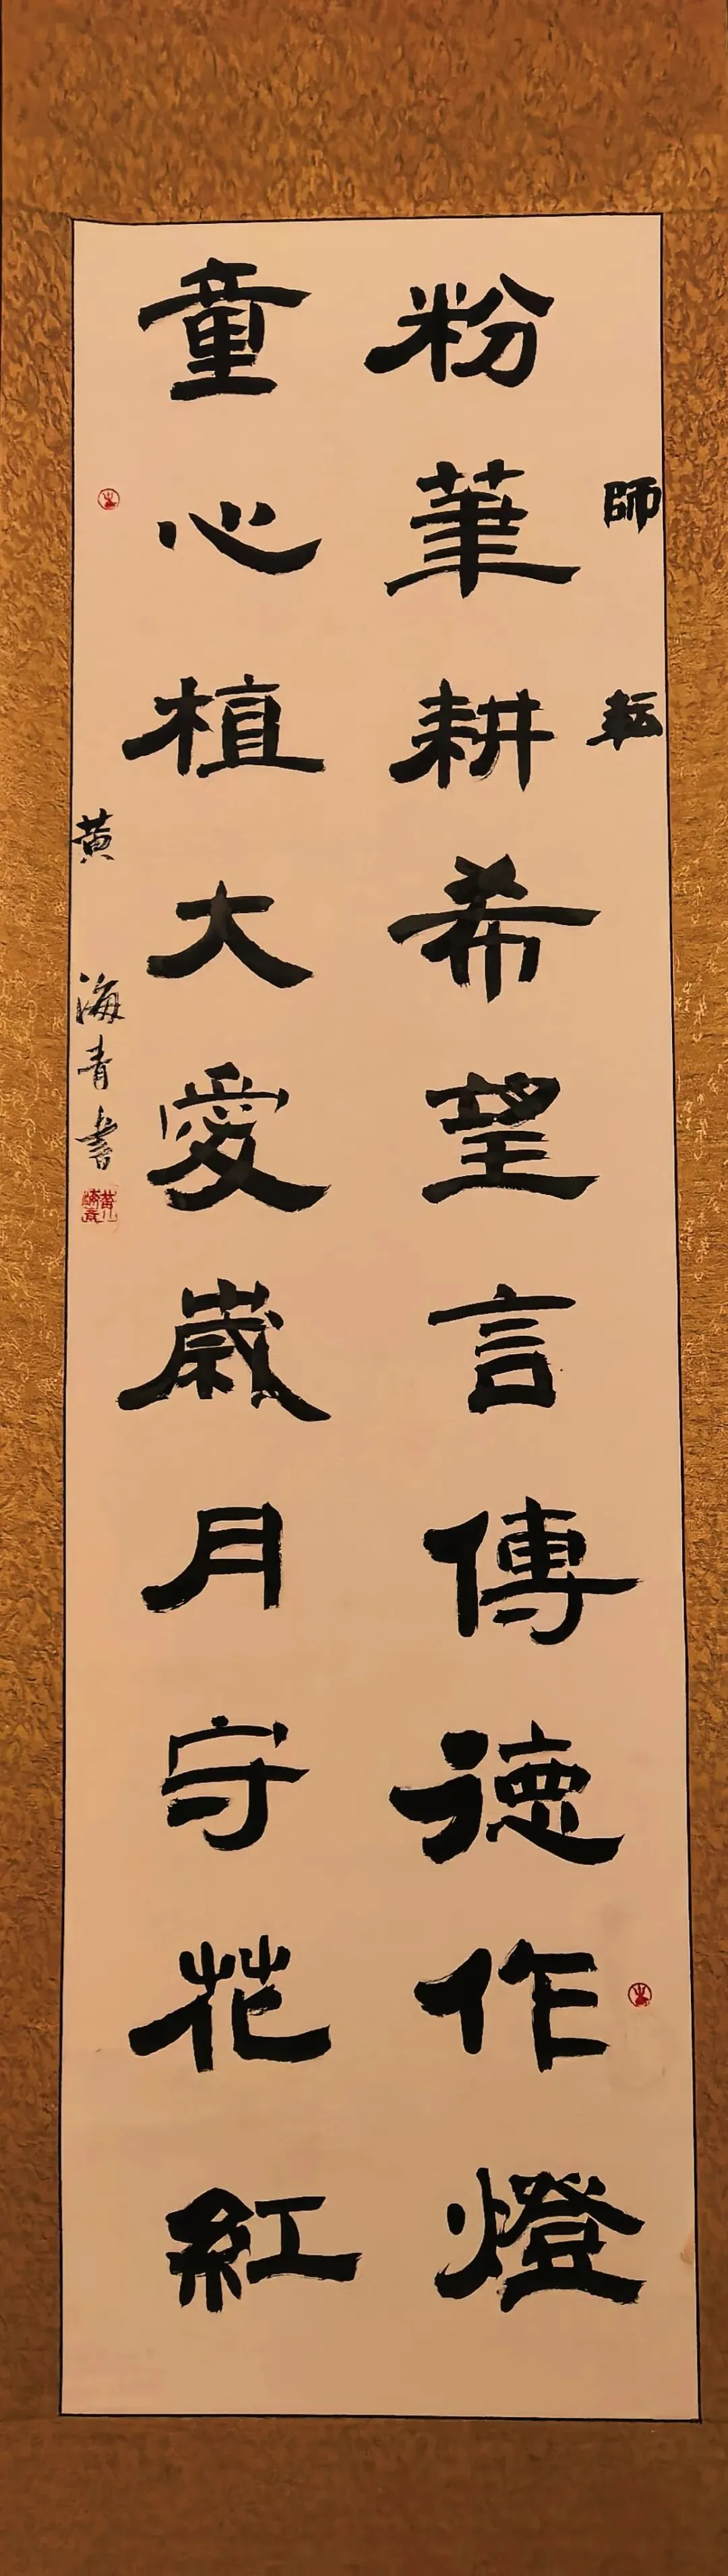 師耘
粉筆耕希望言傳德作燈
童心植大愛歲月守花紅
黄海青書